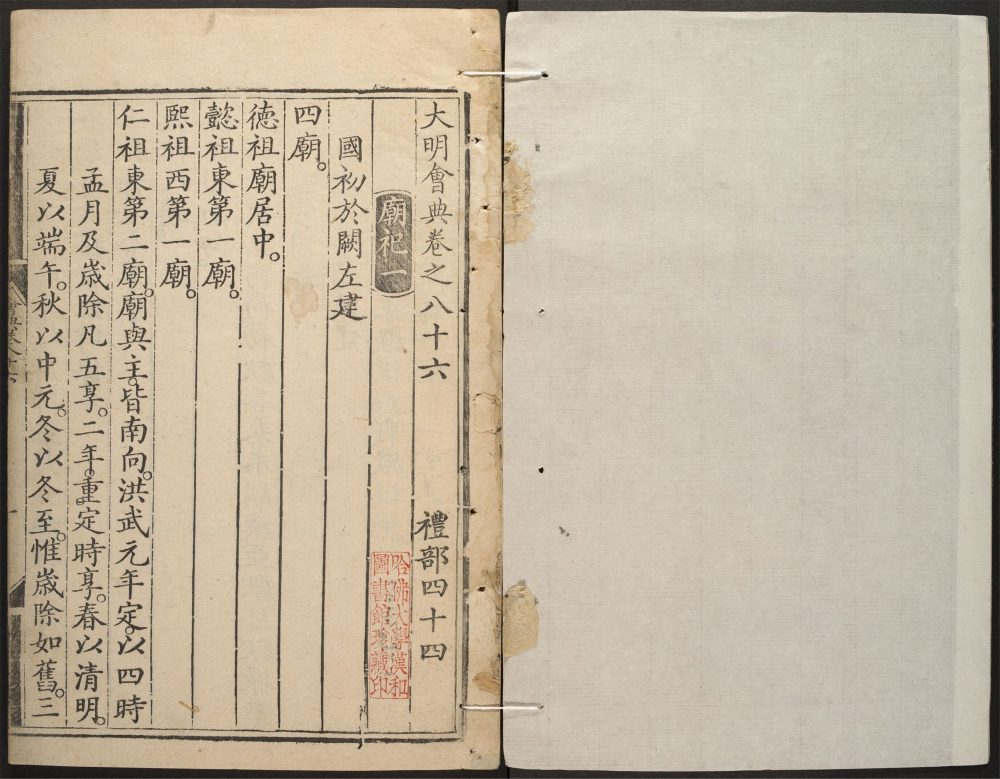 大明會典卷之八十六 禮部四十四
廟祀一
國初於闕左建
四廟。
德祖廟居中。
懿祖東第一廟。
熙祖西第一廟。
仁祖東第二廟。廟與主。皆南向。洪武元年定。以四時
孟月及歲除凡五享。二年。重定時享。春以清明。
夏以端午。秋以中元。冬以冬至。惟歲除如舊。三
哈佛大學漢和
圖書館珍藏印